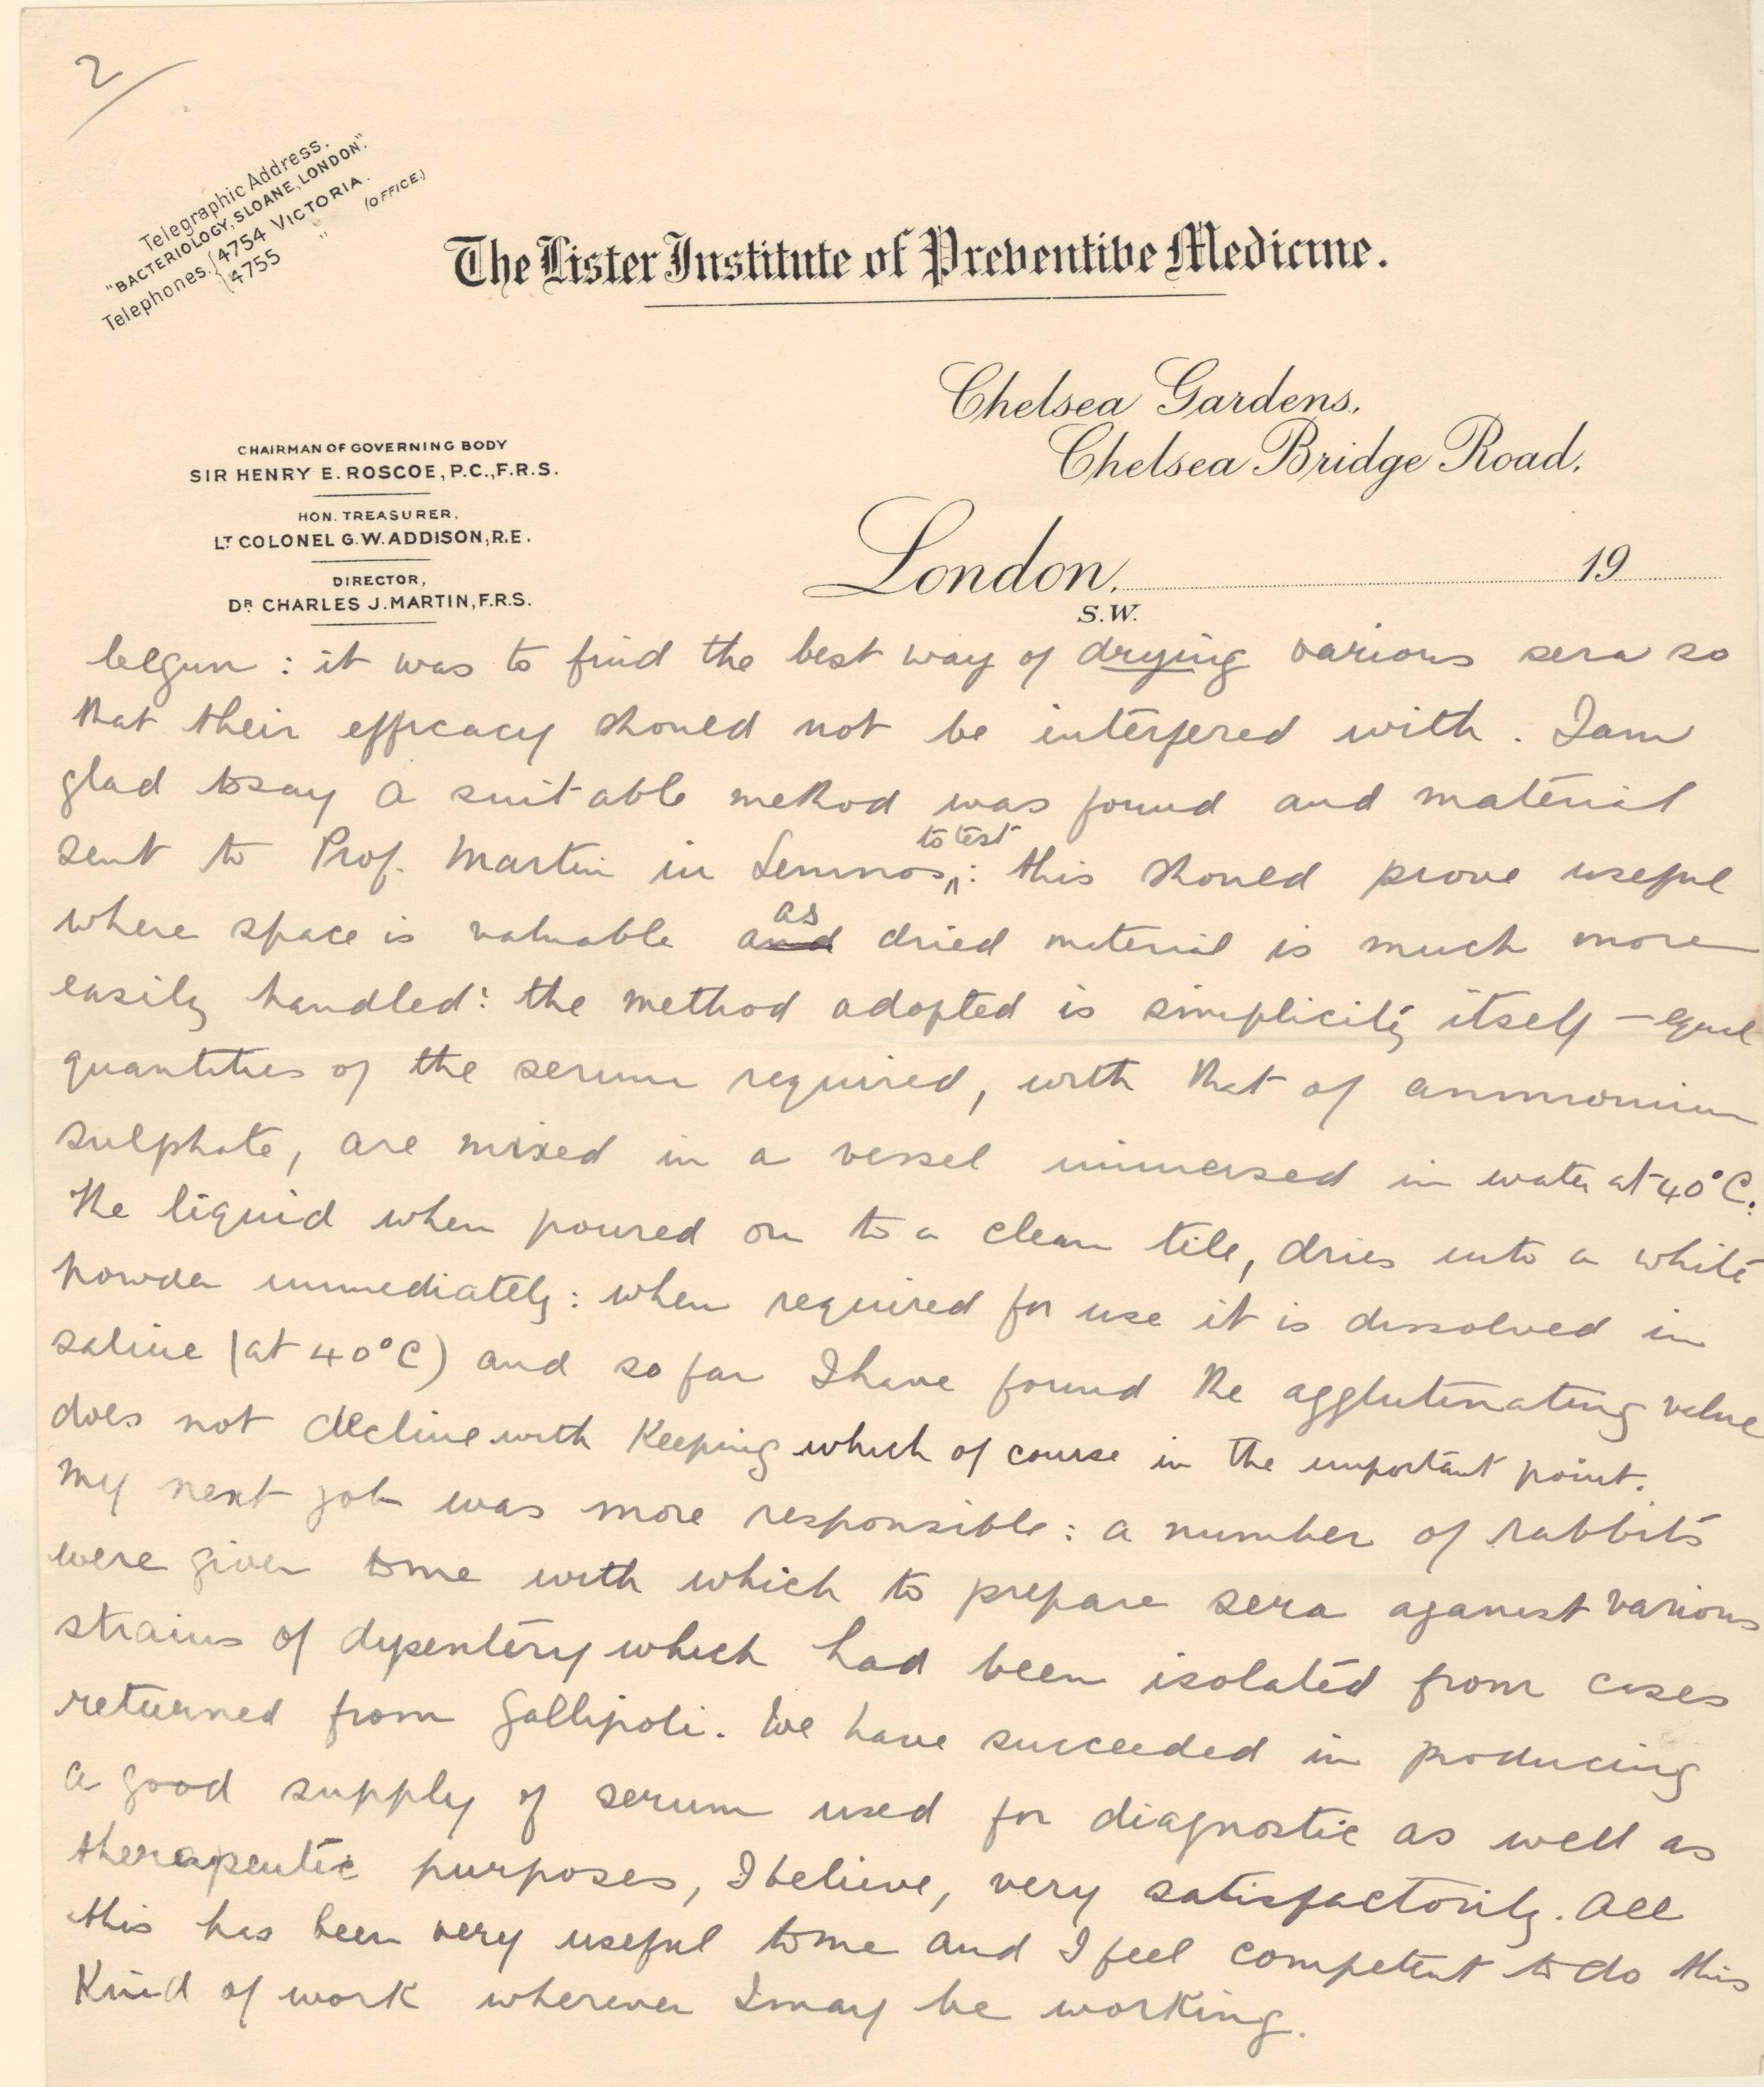 2/
Telegraphic Address.
"BACTERIOLOGY, SLOANE, LONDON."
Telephones. {4754 VICTORIA.
{4755 " (OFFICE)
The Lister Institute of Preventive Medicine.
Chelsea Gardens,
Chelsea Bridge Road,
London, 19
S.W.
CHAIRMAN OF GOVERNING BODY
SIR HENRY E. ROSCOE, P.C., F.R.S.
HON. TREASURER,
LT COLONEL G.W. ADDISON, R.E.
DIRECTOR,
DR CHARLES J. MARTIN, F.R.S.
begun : it was to find the best way of drying various sera so
that their efficacy should not be interfered with. I am
glad to say a suitable method was found and material
to test
sent to Prof. Martin in Lemnos ^ : this should prove useful
as
where space is valuable and dried material is much more
easily handled : the method adopted is simplicity itself – equal
quantities of the serum required, with that of ammonium
sulphate, are mixed in a vessel immersed in water at 40°C.
The liquid when poured on to a clean tile, dries into a white
powder immediately : when required for use it is dissolved in
saline (at 40°C) and so far I have found the agglutinating value
does not decline with keeping which of course in the important point.
My next job was more responsible : a number of rabbits
were given to me with which to prepare sera against various
strains of dysentery which had been isolated from cases
returned from Gallipoli. We have succeeded in producing
a good supply of serum used for diagnostic as well as
therapeutic purposes, I believe, very satisfactorily. All
this has been very useful to me and I feel competent to do this
kind of work wherever I may be working.